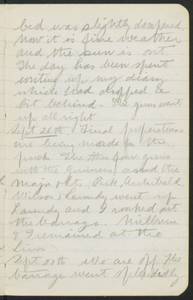 bed was slightly dampened
now it is fine weather
and the sun is out
The day has been spent
writing up my diary
which had dropped a
bit behind. The guns went
up all right
Sept 26th Final preparations
are being made for the
push. The other four guns
with the Gunners, and the
Major,
Wilson & went up
and I worked out
the barrage.
& I remained at the
line
Sept 28th We are off. The
barrage went splendidly